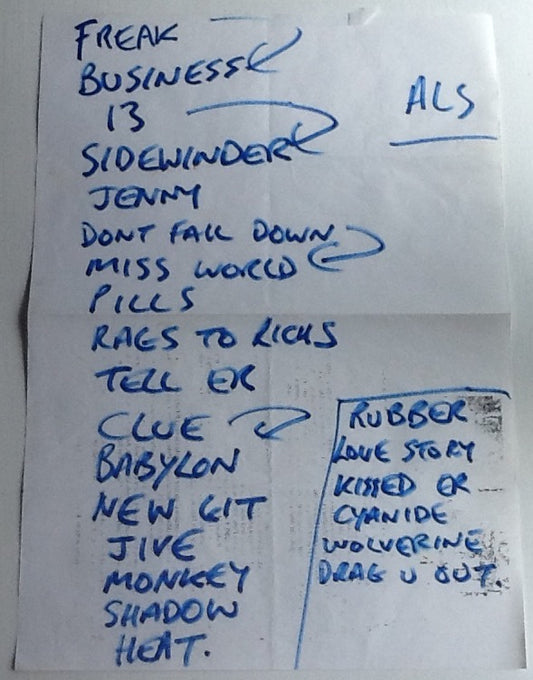 FREAK
BUSINESS
13
SIDEWINDER
JENNY
DONT FALL DOWN
MISS WORLD
PILLS
RAGS TO RICHS
TELL ER
CLUE
BABYLON
NEW GIT
JIVE
MONKEY
SHADOW
HEAT.
ALS
RUBBER
LOVE STORY
KISSED ER
CYANIDE
WOLVERINE
DRAG U OUT.